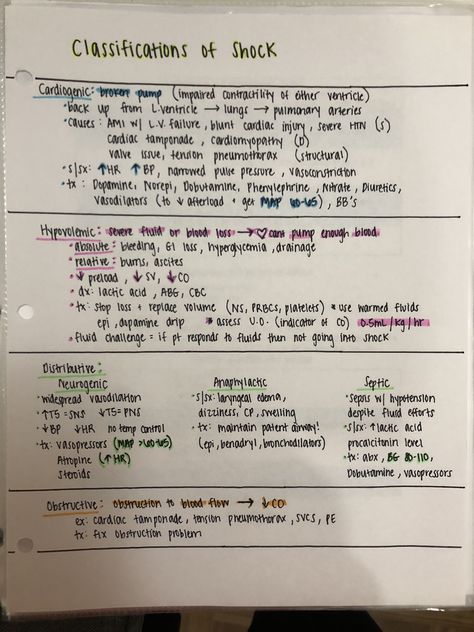 Classifications of Shock
Cardiogenic: broken pump (impaired contractility of either ventricle)
• back up from L.ventricle → lungs → pulmonary arteries
• causes: AMI w/ L.V. failure, blunt cardiac injury, severe HTN (S)
cardiac tamponade, cardiomyopathy (D)
valve issue, tension pneumothorax (structural)
• s/sx: ↑HR ↑BP, narrowed pulse pressure, vasoconstriction
• tx: Dopamine, Norepi, Dobutamine, Phenylephrine, Nitrate, Diuretics,
Vasodilators (to ↓ afterload + get MAP 60-65), BB's
Hypovolemic: severe fluid or blood loss → ♡ cant pump enough blood
• absolute: bleeding, GI loss, hyperglycemia, drainage
• relative: burns, ascites
• ↓ preload, ↓ SV, ↓ CO
• dx: lactic acid, ABG, CBC
• tx: stop loss + replace volume (NS, PRBCs, platelets) * use warmed fluids
epi, dopamine drip * assess U.O. (indicator of CO) 0.5mL/kg/hr
• fluid challenge = if pt responds to fluids then not going into shock
Distributive:
Neurogenic
• widespread vasodilation
• ↑T5 = SNS ↓T5 = PNS
• ↓BP ↓HR no temp control
• tx: vasopressors (MAP >60-65)
Atropine (↑HR)
Steroids
Anaphylactic
• s/sx: laryngeal edema,
dizziness, CP, swelling
• tx: maintain patent airway!
(epi, benadryl, bronchodilators)
Septic
• sepsis w/ hypotension
despite fluid efforts
• s/sx: ↑lactic acid
procalcitonin level
• tx: abx, BG 80-110,
Dobutamine, vasopressors
Obstructive: obstruction to blood flow → ↓CO
ex: cardiac tamponade, tension pneumothorax, SVCS, PE
tx: fix obstruction problem